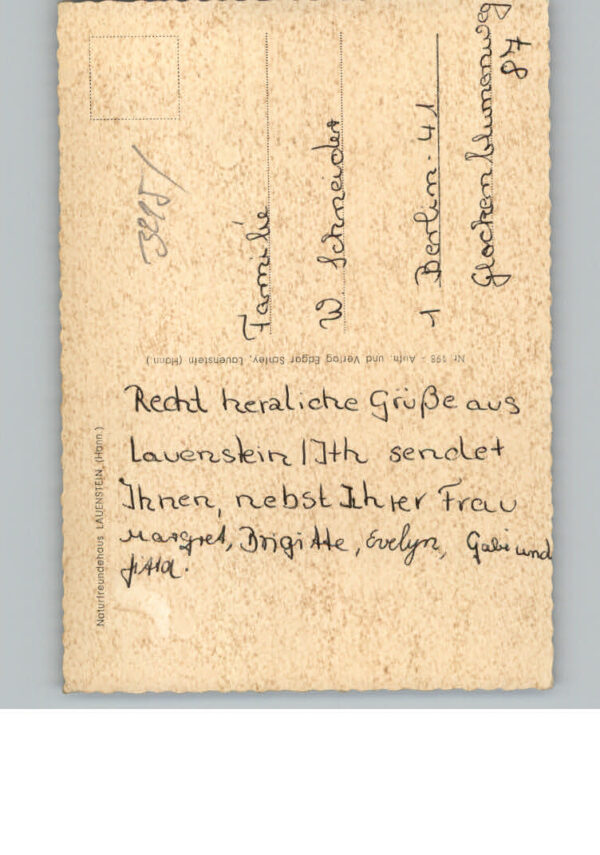 Recht herzliche Grüße aus
Lauenstein / Ith sendet
Ihnen, nebst Ihrer Frau
Margret, Brigitte, Evelyn, Gabi und
Familie
W. Schneider
1 Berlin-41
Glockenblumenweg
87
Nr 198 - Aufn. und Verlag Edgar Schley, Lauenstein (Hann.)
Naturfreundehaus LAUENSTEIN (Hann.)